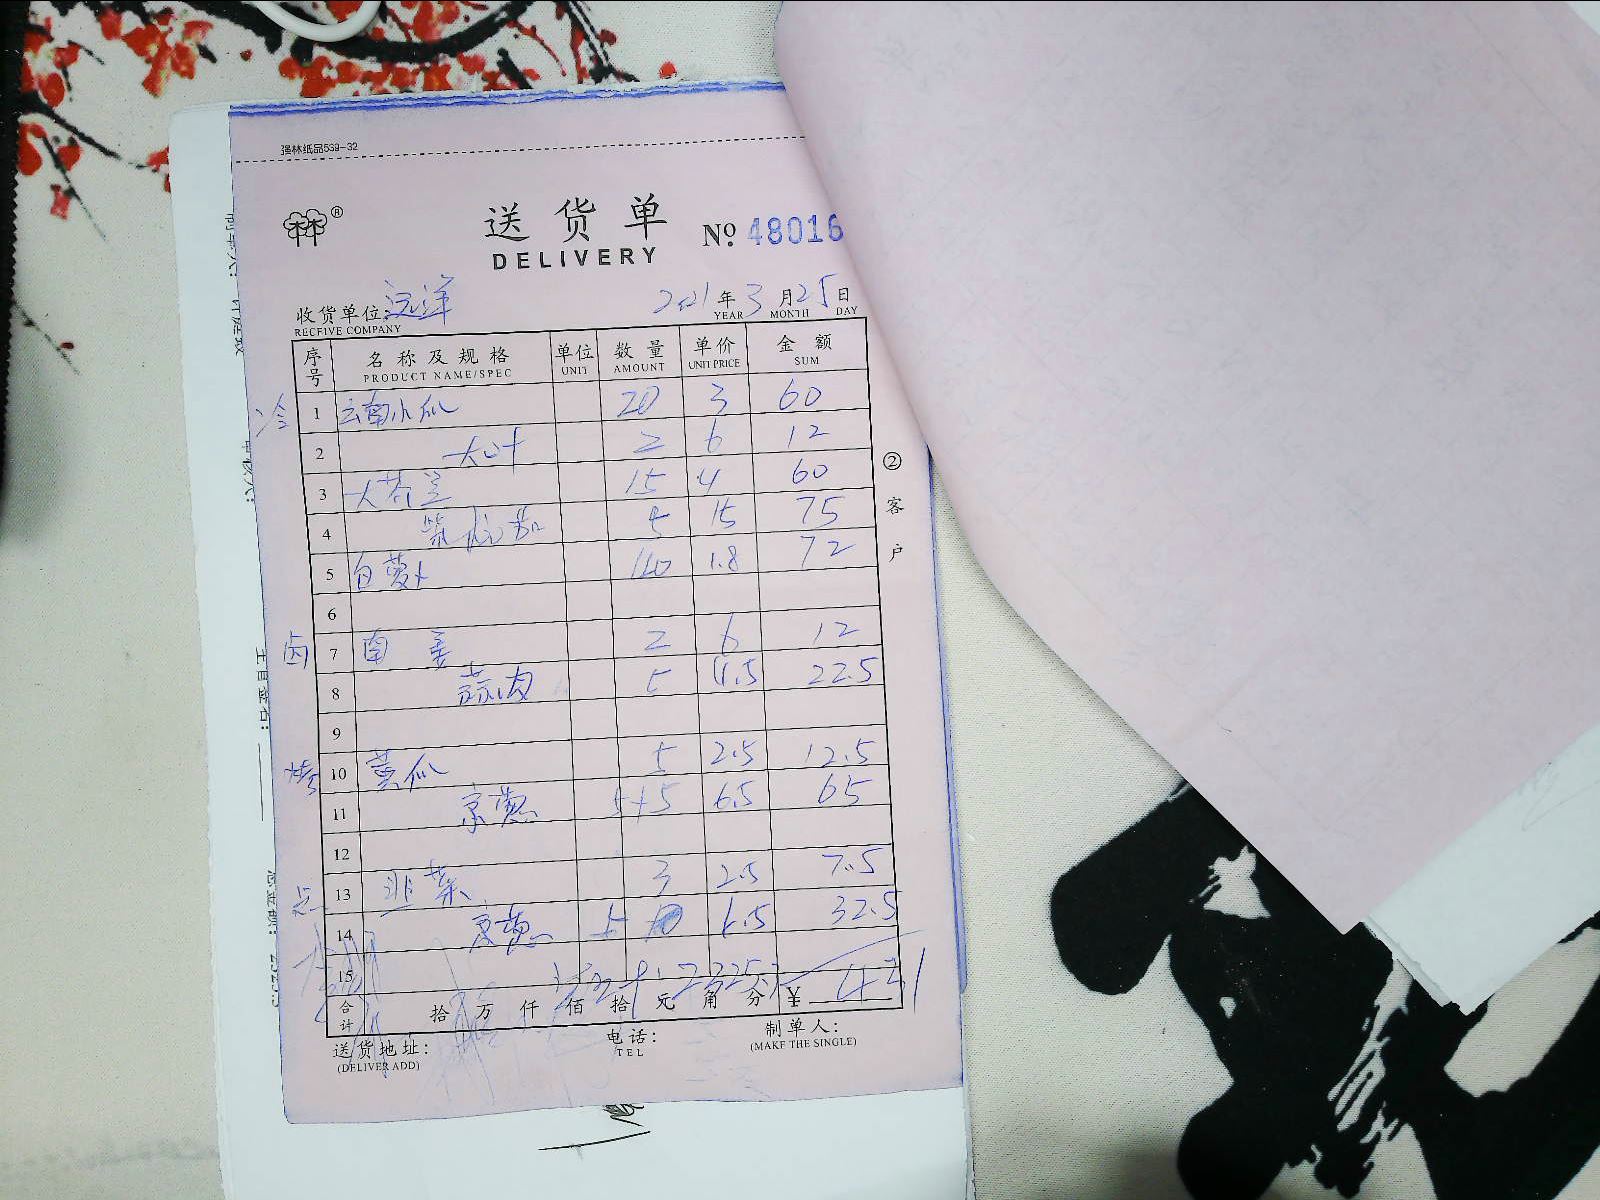 强林纸品539-32
林林®
送货单
DELIVERY
№ 48016
收货单位: 远洋 2021年3月25日
RECEIVE COMPANY YEAR MONTH DAY
序号 名称及规格 单位 数量 单价 金额
PRODUCT NAME/SPEC UNIT AMOUNT UNIT PRICE SUM
冷 1 云南小瓜 20 3 60
2 大叶 2 6 12
3 15 4 60
4 5 15 75
5 白萝卜 40 1.8 72
6
卤 7 南姜 2 6 12
8 蒜肉 5 4.5 22.5
9
烤 10 黄瓜 5 2.5 12.5
11 京葱 5+5 6.5 65
12
点 13 韭菜 3 2.5 7.5
14 京葱 5 6.5 32.5
15
合计 拾 万 仟 佰 拾 元 角 分 ¥ 431
② 客户
送货地址: 电话: 制单人:
(DELIVER ADD) TEL (MAKE THE SINGLE)